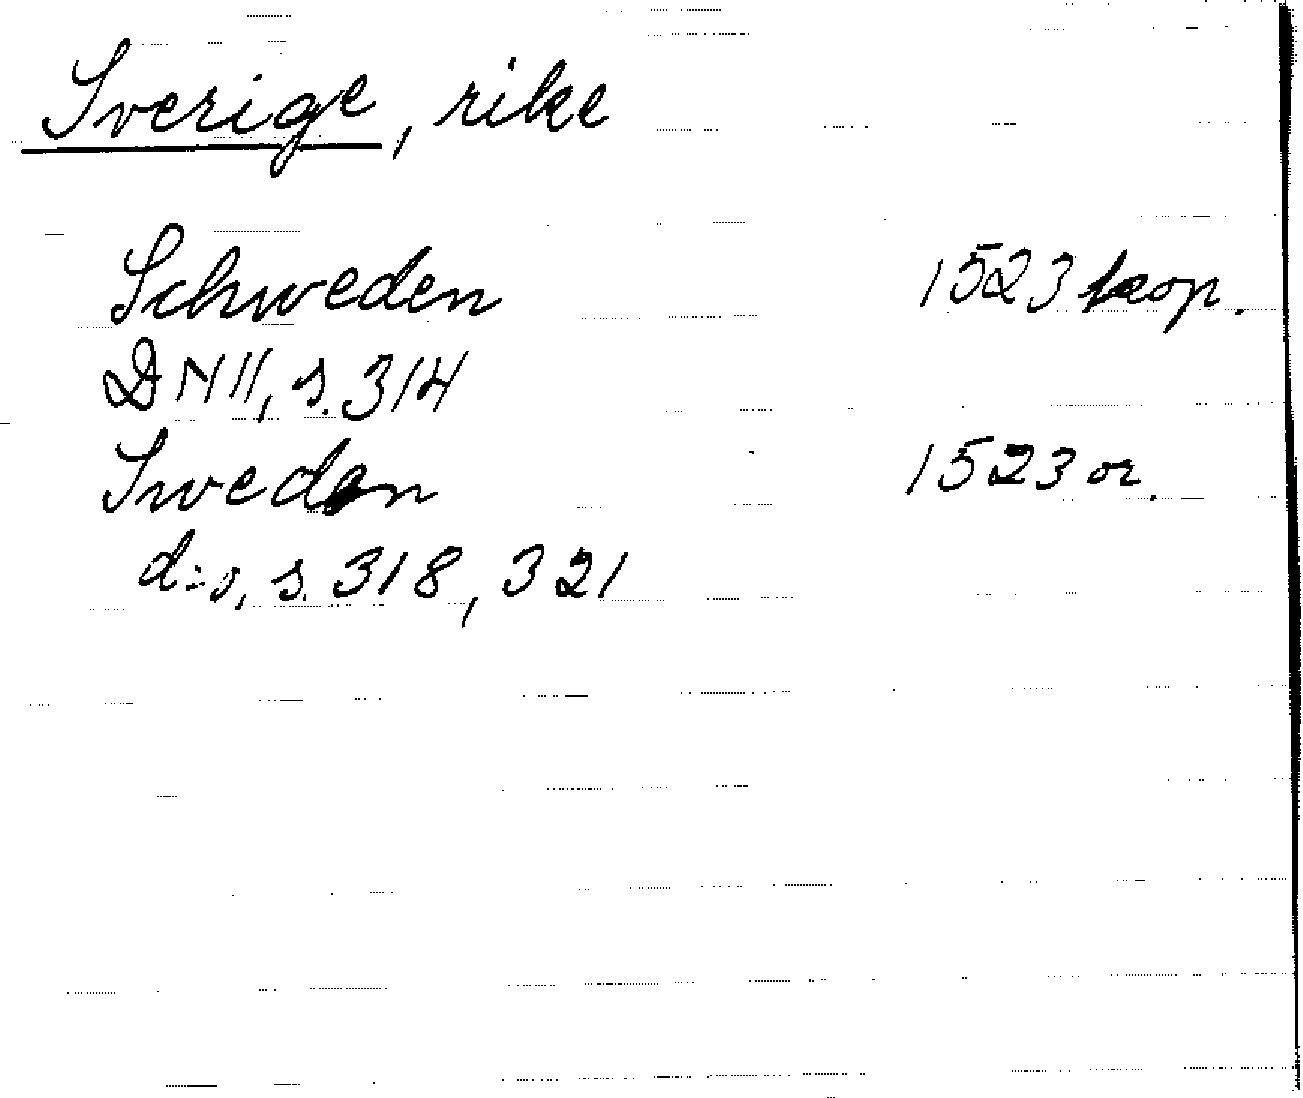 Sverige, rike
Schweden 1523 kop.
DN II, s. 314
Sweden 1523 or.
d:o, s. 318, 321